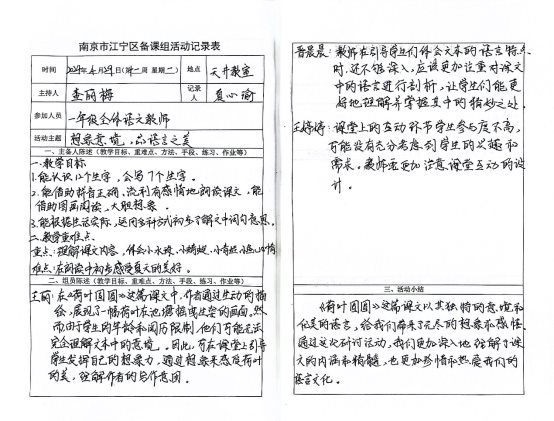 南京市江宁区备课组活动记录表
时间 2024年4月29日(第二周 星期二) 地点 天井教室
主持人 查丽梅 记录人 夏心瑜
参加人员 一年级全体语文教师
活动主题 想象意境,品语言之美
一、主备人陈述(教学目标、重难点、方法、手段、练习、作业等)
一.教学目标
1.能认识12个生字,会写7个生字。
2.能借助拼音正确、流利有感情地朗读课文,能
借助图画阅读,大胆想象。
3.能根据生活实际,运用多种方式初步了解文中词句意思。
二.教学重难点.
重点:理解课文内容,体会小水珠、小蜻蜓、小青蛙、小鱼儿的心情
难点:在朗读中初步感受夏天的美好。
二、组员陈述(教学目标、重难点、方法、手段、练习、作业等)
王丽:在《荷叶圆圆》这篇课文中,作者通过生动的描
绘,展现了一幅荷叶在池塘摇曳生姿的画面,然
而由于学生的年龄和阅历限制,他们可能无法
完全理解文本的意境。因此,可在课堂上引导
学生发挥自己的想象力,通过想象来感受荷叶
的美,理解作者的写作意图。
晋晨晨:教师在引导学生们体会文本的语言特点
时,还不够深入,应该更加注重对课文
中的语言进行剖析,让学生们能更
好地理解并掌握其中的精妙之处。
王婷婷:课堂上的互动环节学生参与度不高,
可能没有充分考虑到学生的兴趣和
需求。教师需更加注意课堂互动的设
计。
三、活动小结
《荷叶圆圆》这篇课文以其独特的意境和
优美的语言,给我们带来了无尽的想象和感悟。
通过这次研讨活动,我们更加深入地理解了课
文的内涵和精髓,也更加珍惜和热爱我们的
语言文化。